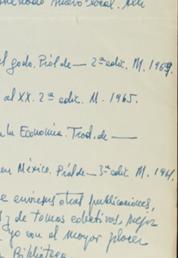 nuevo social. Mé
el godo. Pról de — 2ª edic. M. 1967.
al XX. 2ª edic. M. 1965.
la Economía. Trad. de —
en México. Pról de — 3ª edic. M. 1961.
e envíen otras publicaciones,
y de tomos colectivos, mejor
yo con el mayor placer
Biblioteca